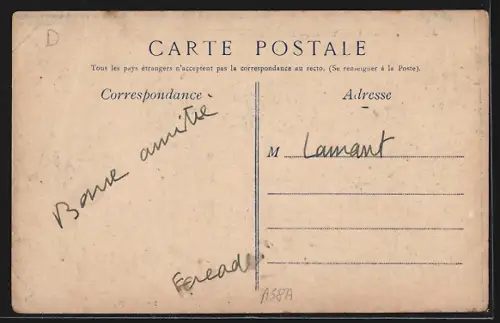 D
CARTE POSTALE
Tous les pays étrangers n'acceptent pas la correspondance au recto. (Se renseigner à la Poste).
Correspondance
Adresse
Bonne amitié
M Lamant
A58A